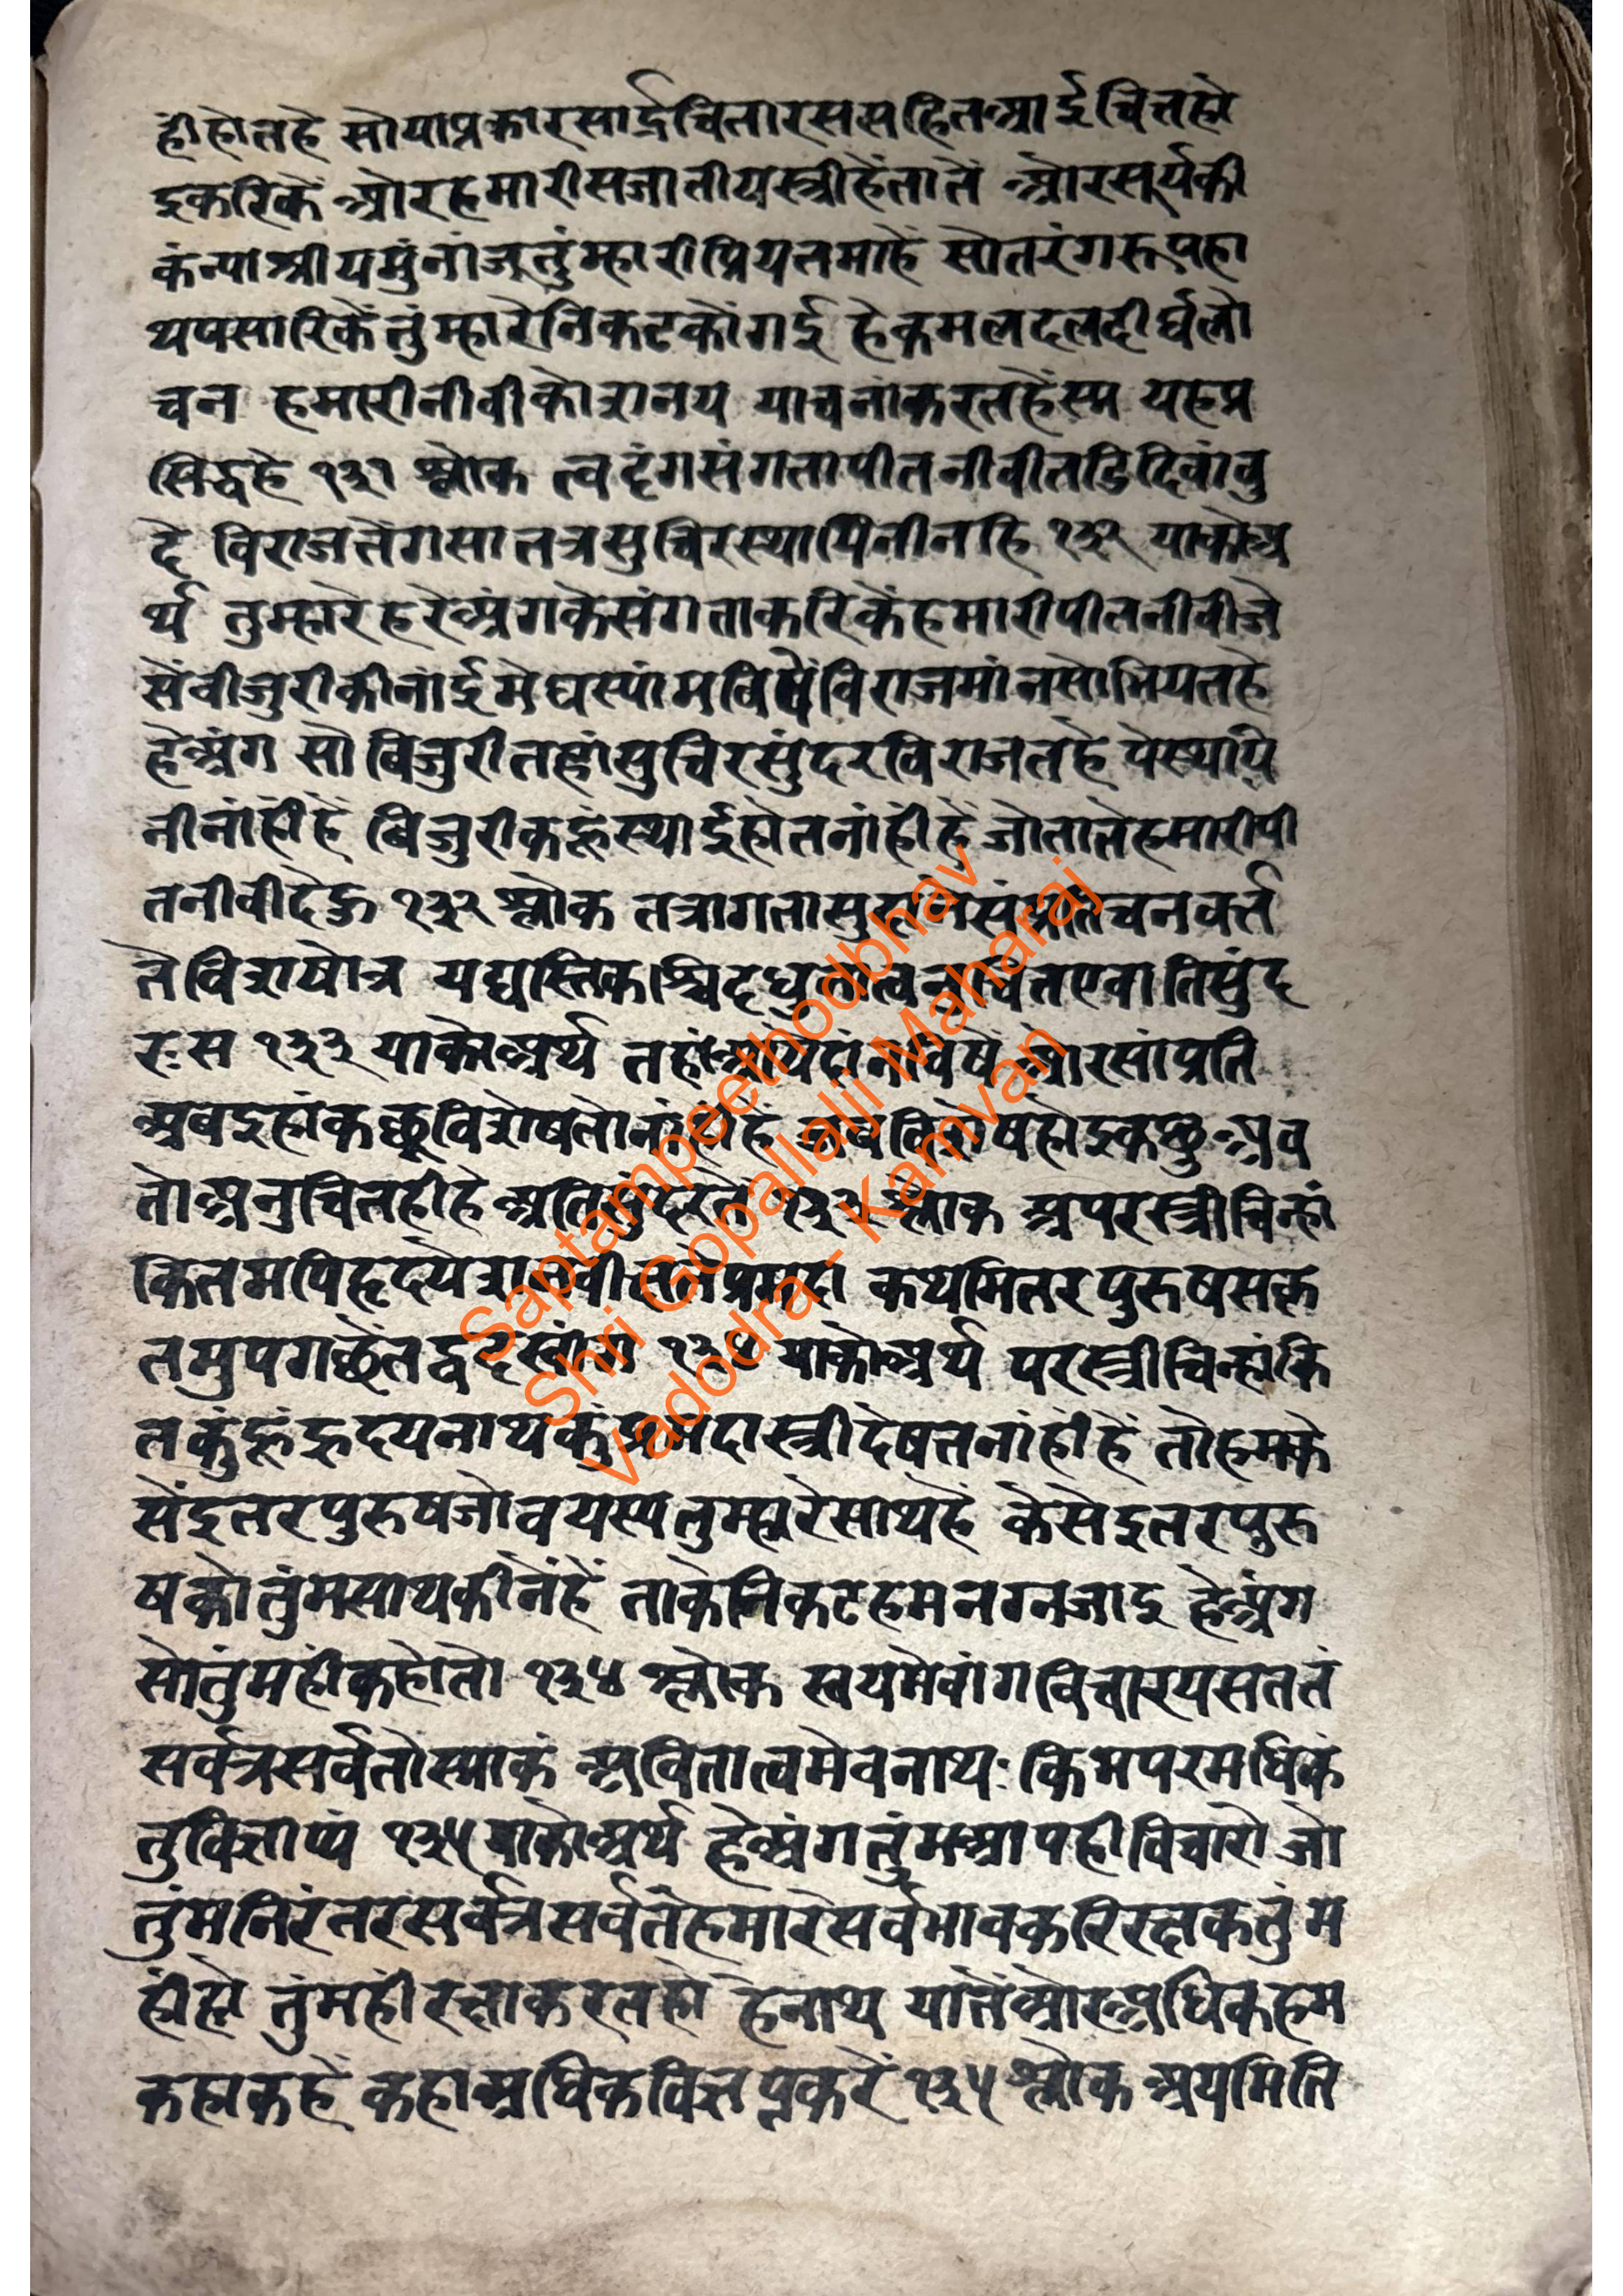 ही होत हे सो या प्रकार सार्द्र चिता रस सहित आर्द्र चित्त हो
इ करिकें और हमारी सजातीय स्त्री हें तातें और सूर्य की
कंन्या श्री यमुंनां जू तुंम्हारी प्रियतमा हें सो तरंग रूप हा
थ पसारिकें तुंम्हारे निकट कों गई हे कमल दल दीर्घ लो
चन हमारी नीवी को
याचनां करत हें स्म यह प्र
सिद्ध हे १३१ श्लोक त्वदंगसंगतापीतनीवीतडिदिवांबु
दे विराजतेंगसातत्रसुचिरस्थायिनीनहि १३२ याको अ
र्थ तुम्हारे हरे अंग के संगता करिकें हमारी पीत नीवी जे
सें वीजुरी की नांई मेघस्यांम विषें विराजमांन सोभियत हे
हे अंग सो बिजुरी तहां सुचिर सुंदर विराजत हे पे स्थायि
नी नांहीं हें बिजुरी कहूं स्थाई होत नांहीं हें जो तातें हमारी पी
त नीवी देहु १३२ श्लोक तत्रागतासु
चनवर्त्त
ते विशेषोत्र यद्यस्तिकश्चिदधुना
एवातिसुंद
रः स १३३ याको अर्थ तहां
और सांप्रति
अब इहां कछू विशेष तो नांहीं हे
होइ कछु अब
तो अनुचित ही हे अति
श्लोक अपरस्त्रीचिन्हां
कितमपिहृदये
कथमितरपुरुषसक्त
तमुपगच्छेत
याको अर्थ परस्त्री चिन्हांकि
त कुं हूं हृदयनाथ कुं प्रमदा स्त्री देषत नांहीं हें तो हम के
सें इतर पुरुष जो वयस्य तुम्हारे साथ हे केसे इतर पुरु
ष को तुंम साथ कीनें हें ताके निकट हम नग्न जाइ हे अंग
सो तुंम हीं कहो तो १३४ श्लोक स्वयमेवांगविचारयसततं
सर्वत्रसर्वतोस्माकं अवितात्वमेवनाथः किमपरमधिकं
तुविज्ञाप्यं १३५ याको अर्थ हे अंग तुंम आप ही विचारो जो
तुंम निरंतर सर्वत्र सर्वतें हमारे सर्वभाव करि रक्षक तुंम
हीं हो तुंम हीं रक्षा करत हो हे नाथ यातें और अधिक हम
कहा कहें कहा अधिक विज्ञप्त करें १३५ श्लोक अयमिति
Saptampeethodbhav
Shri Gopallalji Maharaj
Vadodra - Kamvan